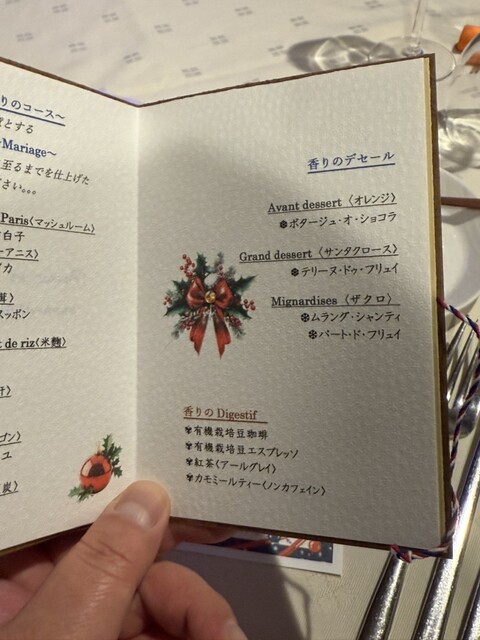 りのコース～
とする
Mariage～
至るまでを仕上げた
さい。。。
Paris〈マッシュルーム〉
白子
ーアニス〉
カ
茸〉
スッポン
t de riz〈米麹〉
ゴン〉
ユ
炭〉
香りのデセール
Avant dessert 〈オレンジ〉
❆ポタージュ・オ・ショコラ
Grand dessert 〈サンタクロース〉
❆テリーヌ・ドゥ・フリュイ
Mignardises 〈ザクロ〉
❆ムラング・シャンティ
❆パート・ド・フリュイ
香りのDigestif
✾有機栽培豆珈琲
✾有機栽培豆エスプレッソ
✾紅茶〈アールグレイ〉
✾カモミールティー〈ノンカフェイン〉